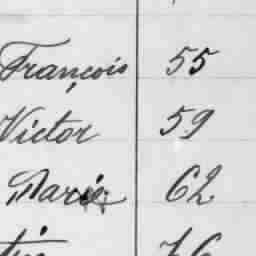 François 55
Victor 59
Marie 62